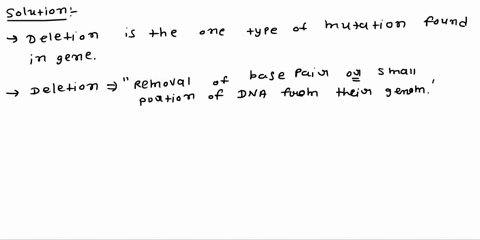 Solution:-
→ Deletion is the one type of mutation found
in gene.
→ Deletion ⇒ "Removal of base pair or small
portion of DNA from their genom.'